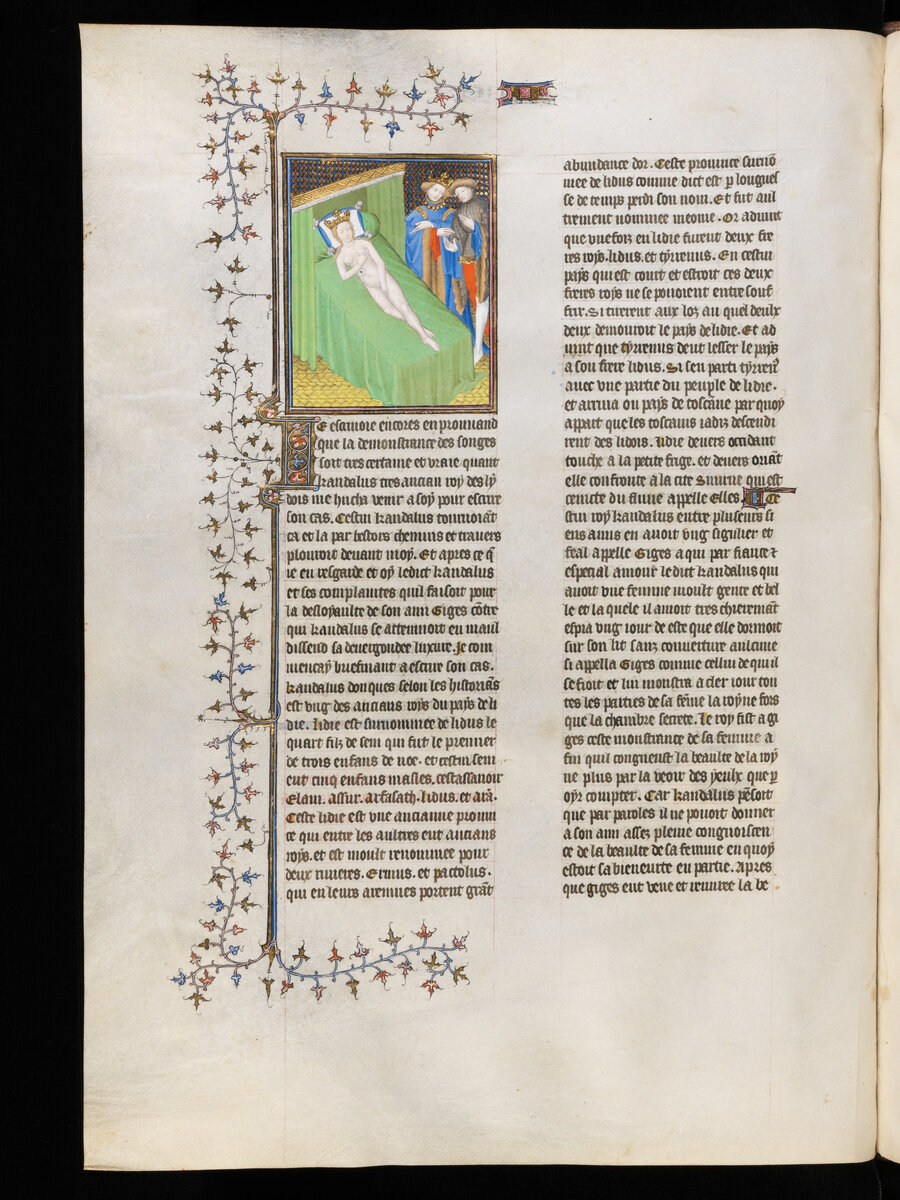 IE estudioie encores en prouuand
que la demonstrance des songes
soit tres certaine et vraie quant
kandalus tres ancian roy des ly
dois me hucha venir a soy pour escrire
son cas. Cestui kandalus tournoiāt
ca et la par bestors chemins et trauers
plouroit deuant moy. Et apres ce q̄
ie eu resgarde et oy ledict kandalus
et ses complaintes quil faisoit pour
la desloyaulte de son ami Giges cōtre
qui kandalus se attennoit en maul
dissend sa deuergondee luxure. Je com
mencay briefmant a escrire son cas.
kandalus donques selon les historiās
est vng des ancians roys du pays de li
die. lidie est surnommee de lidus le
quart filz de sem qui fut le premier
de trois enfans de noe. et cestui sem
eut cinq enfans masles. cestassauoir
Elam. assur. arfasath. lidus. et arā.
Ceste lidie est vne ancianne prouin
ce qui entre les aultres eut ancians
roys. et est moult renommee pour
deux riuieres. Ermus. et pactolus.
qui en leurs arennes portent grāt
abundance dor. Ceste prouince surnō
mee de lidus comme dict est p longues
se de temps perdi son nom. Et fut aul
trement nommee meonie. Or aduint
que vne fois en lidie furent deux fre
res roys. lidus. et tyrrenus. En cestui
pays qui est court et estroit ces deux
freres roys ne se pouoient entre souf
frir. Si tirerent aux loz au quel deulx
deux demouroit le pays de lidie. Et ad
uint que tyrrenus deut lesser le pays
a son frere lidus. Si sen parti tyrrenꝰ
auec vne partie du peuple de lidie.
et arriua ou pays de toscāne par quoy
appart que les toscains iadiz descendi
rent des lidois. lidie deuers occidant
touche a la petite frige. et deuers oriāt
elle confronte a la cite Smirne qui est
ceincte du fluue appelle Elles. Ce
stui roy kandalus entre plusieurs si
ens amis en auoit vng sigulier et
feal appelle Giges a qui par fiance ⁊
especial amour ledict kandalus qui
auoit vne femme moult gente et bel
le et la quele il amoit tres chieremāt
espia vng iour de este que elle dormoit
sur son lit sanz couuerture aulcune
si appella Giges comme cellui de qui il
se fioit et lui monstra a cler iour tou
tes les parties de sa fēme la royne fors
que la chambre secrete. Le roy fist a gi
ges ceste monstrance de sa femme a
fin quil congneust la beaulte de la roy
ne plus par la veoir des yeulx que p
oyr compter. Car kandalus pēsoit
que par paroles il ne pouoit donner
a son ami assez pleine congnoiscen
ce de la beaulte de sa femme en quoy
estoit sa bieneurte en partie. Apres
que giges eut veue et remiree la be